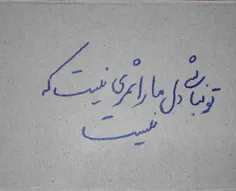 تو نباشی دل ما را ثمری نیست که
نیست